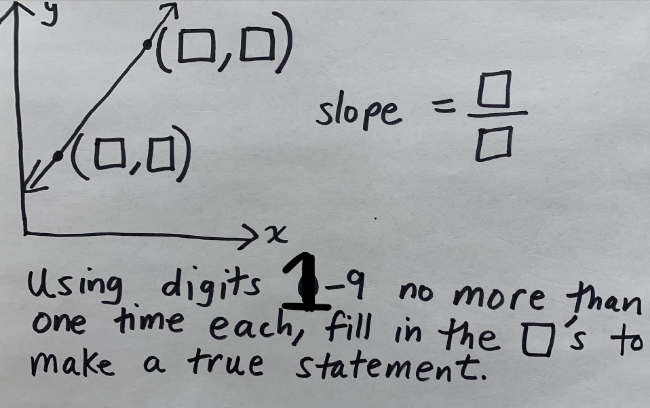 y
(□,□)
slope = □/□
(□,□)
x
Using digits 1-9 no more than
one time each, fill in the □'s to
make a true statement.